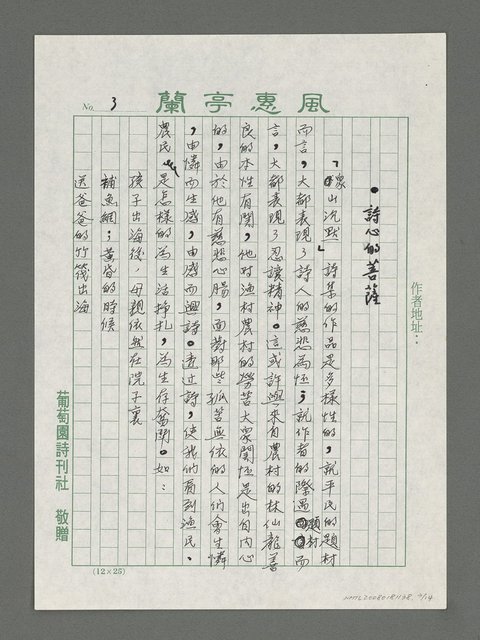 蘭亭惠風
No. 3
作者地址：
• 詩心的菩薩
「象山沉默」詩集的作品是多樣性的，就平民的題材
而言，大都表現了詩人的慈悲為懷；就作者的際遇而
言，大都表現了忍讓精神。這或許與來自農村的林仙龍善
良的本性有關，他對漁村農村的勞苦大眾關懷是出自內心
的，由於他有慈悲心腸，面對那些孤苦無依的人們會生憐
，由憐而生感，由感而迴詩。透過詩，使我們看到漁民、
農民，是怎樣的為生活掙扎，為生存奮鬥。如：
孩子出海後，母親依然在院子裏
補魚網；黃昏的時候
送爸爸的竹筏出海
葡萄園詩刊社 敬贈
(12×25)